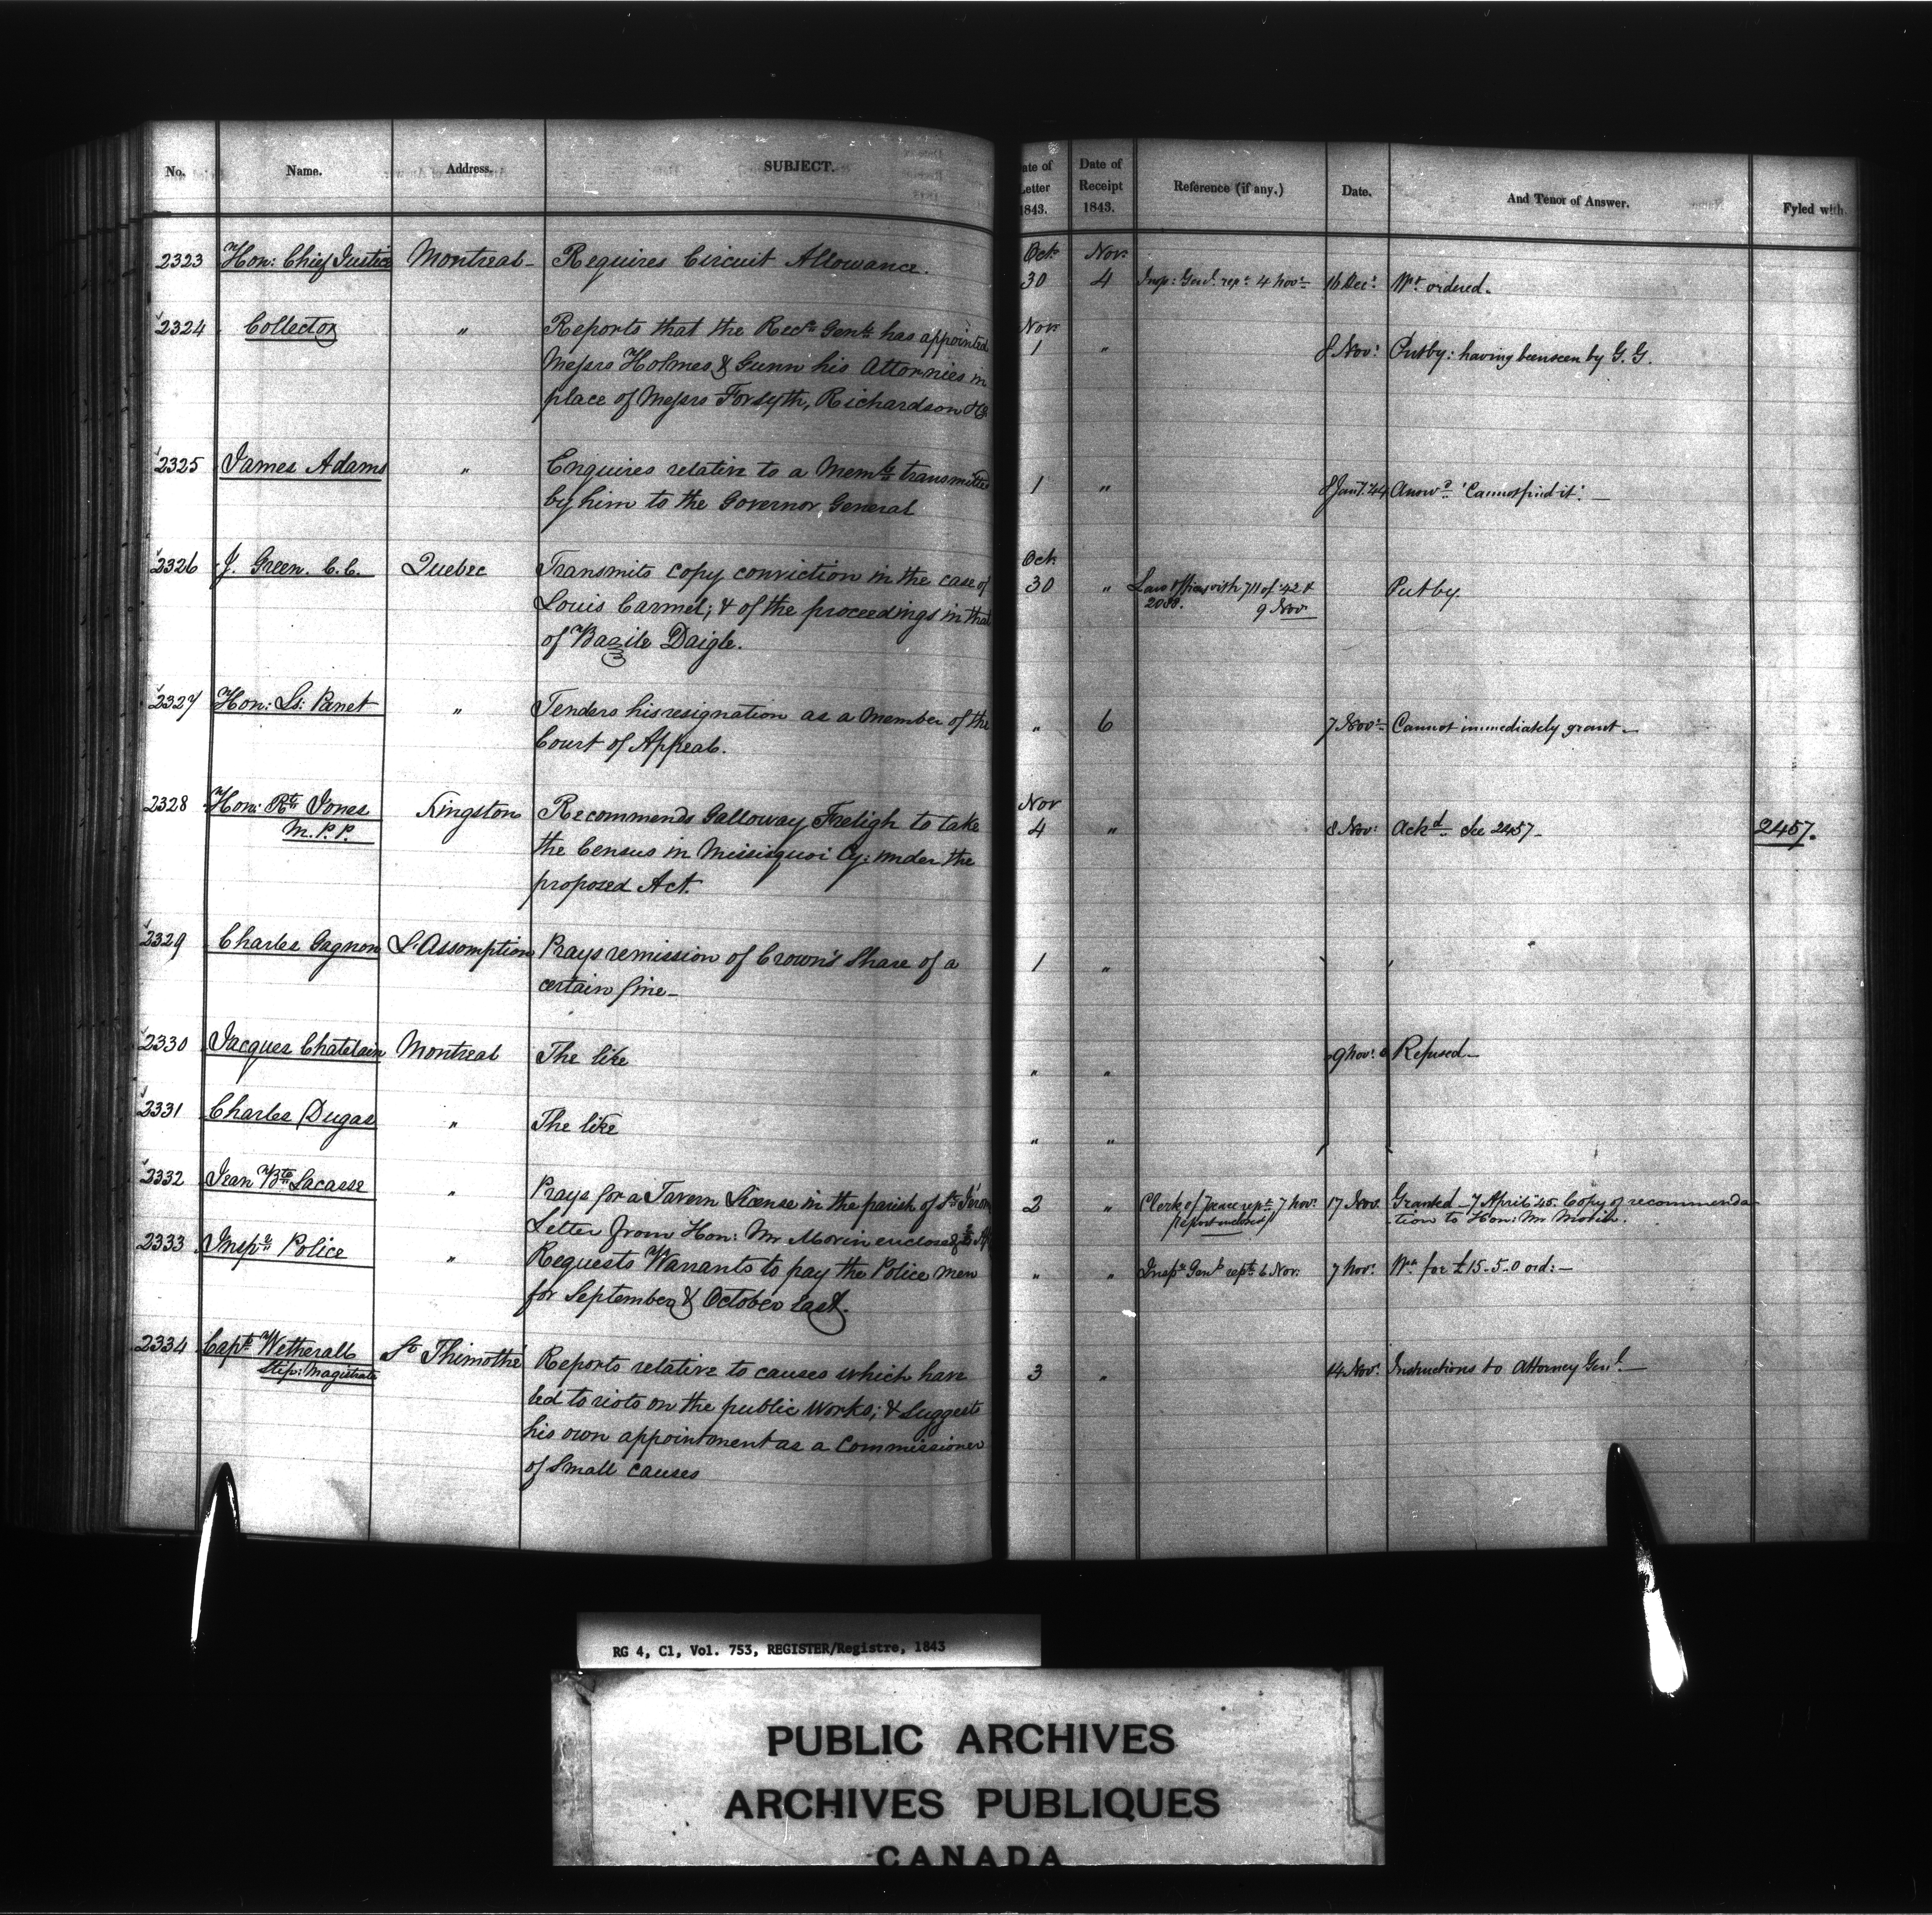 No. Name. Address. SUBJECT.
Date of Letter 1843. Date of Receipt 1843. Reference (if any.) Date. And Tenor of Answer. Fyled with.
2323 Hon: Chief Justice Montreal Requires Circuit Allowance.
Oct. 30 Nov. 4 Insp: Genl. rept. 4 Novr. 16 Decr. Wt. ordered.
2324 Collector " Reports that the Recr. Genl. has appointed
Messrs Holmes & Gunn his Attornies in
place of Messrs Forsyth, Richardson & Co.
Nov. 1 " 8 Nov: Put by: having been seen by G. G.
2325 James Adams " Enquires relative to a Meml. transmitted
by him to the Governor General
1 " 8 Jany. 44 Answd. 'Cannot find it'. —
2326 J. Green. C.C. Quebec Transmits copy conviction in the case of
Louis Carmel; & of the proceedings in that
of Bazile Daigle.
Oct. 30 " Law Officers with 711 of '42 &
2088. 9 Nov Put by.
2327 Hon: Ls: Panet " Tenders his resignation as a Member of the
Court of Appeal.
" 6 7 Novr. Cannot immediately grant —
2328 Hon: Rt. Jones Kingston Recommends Galloway Freligh to take
M. P. P. the Census in Missisquoi Cy: under the
proposed Act.
Nov 4 " 8 Nov: Ackd. See 2457 — 2457.
2329 Charles Gagnon L'Assomption Prays remission of Crown's Share of a
certain fine —
1 "
2330 Jacques Chatelain Montreal The like
" " 9 Nov: Refused —
2331 Charles Dugas " The like
" "
2332 Jean Bte. Lacasse " Prays for a Tavern License in the parish of
Letter from Hon: Mr Morin enclosed
2 " Clerk of Peace rept. 7 Nov. 17 Nov. Granted — 7 April '45. Copy of recommenda
report enclosed tion to Hon: Mr Morin.
2333 Inspr. Police " Requests Warrants to pay the Police men
for September & October last.
" " Inspr. Genl. rept. 6 Nov. 7 Nov: Wt. for £15-5-0 ord: —
2334 Capt. Wetherall St. Thimothé Reports relative to causes which have
Stip: Magistrate led to riots on the public Works; & Suggests
his own appointment as a Commissioner
of Small causes
3 " 14 Nov. Instructions to Attorney Genl. —
RG 4, C1, Vol. 753, REGISTER/Registre, 1843
PUBLIC ARCHIVES
ARCHIVES PUBLIQUES
CANADA